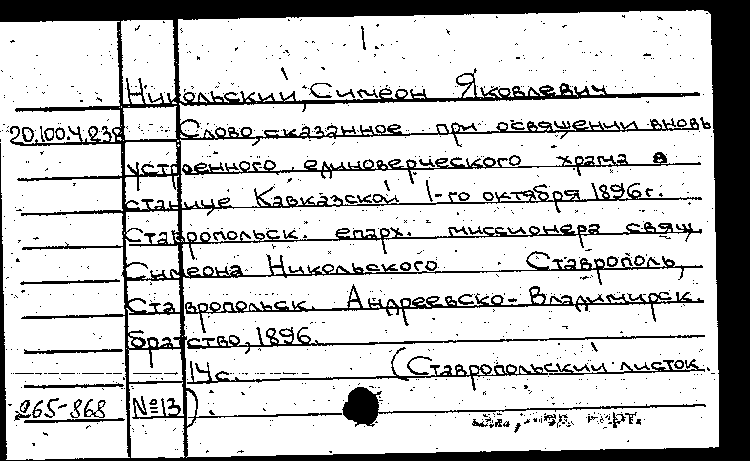 1.
Никольский, Симеон Яковлевич
20.100.4.238 Слово, сказанное при освящении вновь
устроенного единоверческого храма в
станице Кавказской 1-го октября 1896 г.
Ставропольск. епарх. миссионера свящ.
Симеона Никольского Ставрополь,
Ставропольск. Андреевско-Владимирск.
братство, 1896.
14 с. (Ставропольский листок.
265-868 №13).